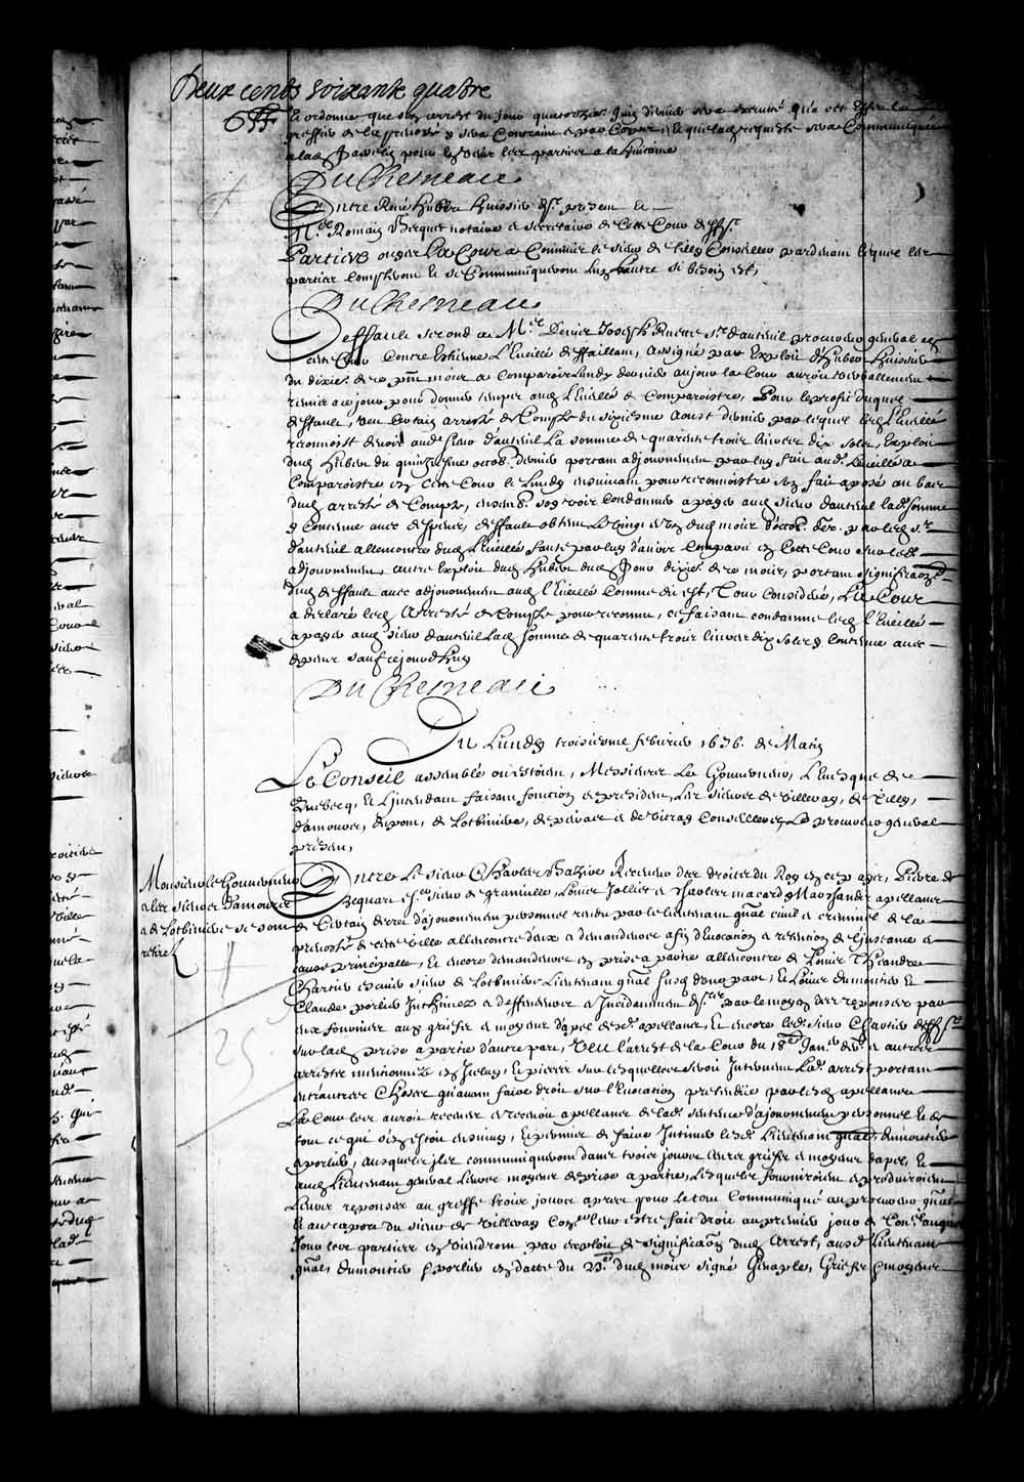 Deux cents soixante quatre
Et ordonne que son arrest du Jour quatorzie. Juin dernier sera executé qu'a cet effet le
greffier de la prevosté y sera Contraint par Corps, et que la requeste sera Communiquée
pour les parties a la huictaine
DuChesneau
Entre René Hubert huissier dr. present et
Me. Romain Becquet notaire et secretaire de Cette Cour deffr.
Parties ouyes La Cour a Commis le sieur de Tilly Conseiller pardevant lequel les
parties Compteront et se Communiqueront l'un l'autre si besoin est,
DuChesneau
Deffault second a Mre. Denis Joseph Ruette sr. d'auteuil procureur general en
cette Cour Contre Estienne L'Eveillé deffaillant, Assigné par Exploit d'hubert huissier
du dixie. de ce put. mois a Comparoir Lundy dernier auquel jour la Cour auroit verballement
remis a ce jour pour donner temps aud. L'Eveillé de Comparoistre, Pour le profit duquel
deffault, veu Certain arresté de Compte du sixiesme Aoust dernier par lequel led. L'Eveillé
reconnoist devoir aud. sieur d'auteuil la somme de quarante trois livres dix sols, Exploit
dud. Hubert du quinziesme octob. dernier portant adjournement par luy fait aud. Leveillé a
Comparoistre en Cette Cour le Lundy ensuivant pour reconnoistre son fait aposé au bas
dud. arresté de Compte, ensemb. soy voir Condamner a payer aud. sieur dauteuil lad. somme
y Contenue avec despens, deffault obtenu Le vingt dud. mois d'octob. der. par led. sr.
dauteuil allencontre dud. l'Eveillé faute par luy d'avoir Comparu en Cette Cour sur led.
adjournement, autre Exploit dud. Hubert dud. Jour dixie. de ce mois, portant signification
dud. deffault avec adjournement aud. l'Eveillé Comme dit est, Tout Consideré, La Cour
a declaré led. Arresté de Compte pour reconnu, ce faisant condamne led. l'Eveillé
a payer aud. sieur dauteuil lad. somme de quarante trois livres dix sols y Contenue avec
despens sauf ce jourdhuy
DuChesneau
Du Lundy troisiesme febvrier 1676. de Matin
Le Conseil assemblé ou estoient, Messieurs Le Gouverneur, L'Evesque de
Quebecq, Et L'intendant faisant fonction de president, Les sieurs de Villeray, de Tilly,
damours, dupont, de Lotbiniere, de peiras et de vitray Conseillers, Le procureur general
present,
Monsieur le Gouverneur
et les sieurs Damours
et de Lotbiniere se sont
retirez
Entre Le sieur Charles Bazire Receveur des droits du Roy en ce pays, Pierre
Becquart Er. sieur de granville, Louis Jolliet et Marchands apellants
de Certain decret d'adjournement personnel rendu par le lieutenant gnal. civil et criminel de la
prevosté de cette ville allencontre d'eux et demandeurs afin d'Evocation et retention de l'instance et
cause principalle, Et encore demandeurs en prise a partie allencontre de Louis Theandre
Chartier escuier sieur de Lotbiniere Lieutenant gnal. susd. d'une part, Et Louis dumontier Et
Claude porlier Inthimez et deffendeurs et Incidemment dr. par le moyen des responses par
eux fournies aux griefs et moyens d'apel desd. apellants, Et encore led. sieur Chartier deffr.
sur lad. prise a partie d'autre part, Veu l'arrest de la Cour du 18e. Janer. der. et autres
arrests mentionnez en Iceluy, Et pieces sur lesquelles seroit Intervenu Led. arrest portant
entr'autres Choses qu'avant faire droit sur l'Evocation pretendue par lesd. apellants
La Cour les auroit receus et reçoit apellants de lad. sentence d'adjournement personnel Et de
tout ce qui s'en est ensuivy, Et permis de faire Intimer lesd. Lieutenant gnal. dumontier
et porlier, ausquels ils communiqueront dans trois jours leurs griefs et moyens d'apel, Et
aud. Lieutenant general leurs moyens de prise a partie, Lesquels fourniroient et produiroient
Leurs responses au greffe trois jours apres pour le tout Communiqué au procureur gnal.
Et au raport du sieur de Villeray Coner. leur estre fait droit au premier jour de Conel. auquel
Jour les parties en viendront par exploit de signification dud. Arrest, ausd. Lieutenant
gnal. dumontier et porlier en datte du 23e. dud. mois signé Genaple, Griefs et moyens